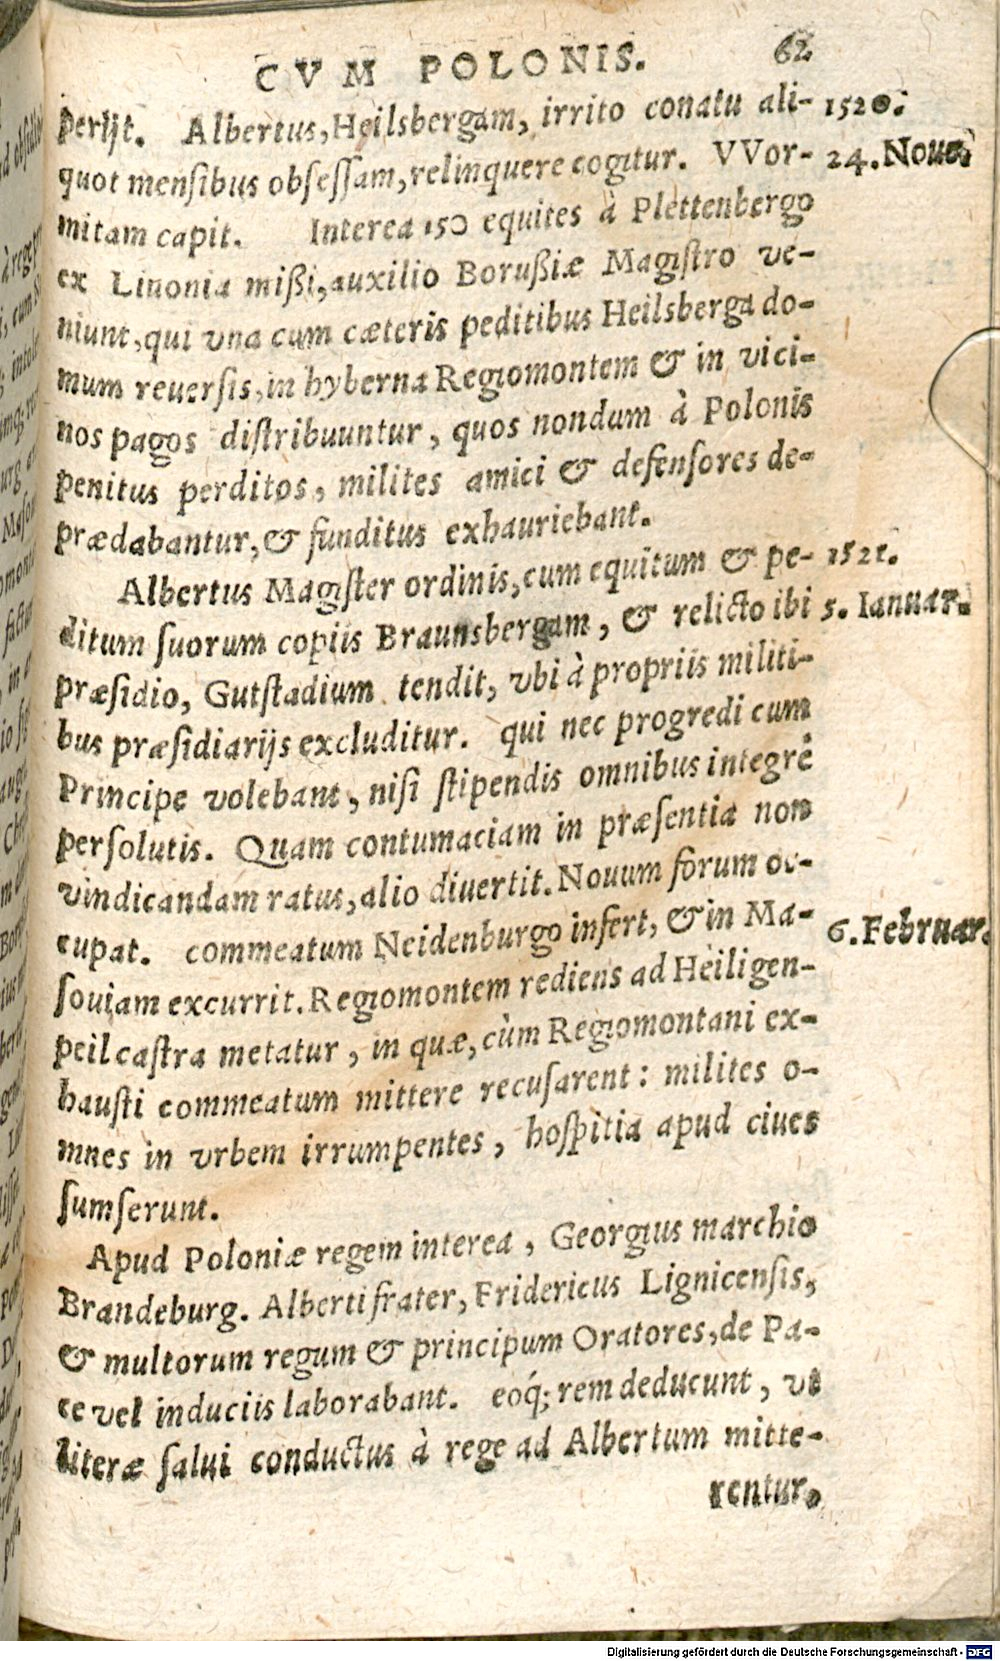 CVM POLONIS. 62
perijt. Albertus, Heilsbergam, irrito conatu ali- 1520.
quot mensibus obsessam, relinquere cogitur. VVor- 24. Noue.
mitam capit. Interea 150 equites à Plettenbergo
ex Liuonia mißi, auxilio Borußiæ Magistro ve-
niunt, qui vna cum cæteris peditibus Heilsberga do-
mum reuersis, in hyberna Regiomontem & in vici-
nos pagos distribuuntur, quos nondum à Polonis
penitus perditos, milites amici & defensores de-
prædabantur, & funditus exhauriebant.
Albertus Magister ordinis, cum equitum & pe- 1521.
ditum suorum copiis Braunsbergam, & relicto ibi 5. Ianuar.
præsidio, Gutstadium tendit, vbi à propriis militi-
bus præsidiarijs excluditur. qui nec progredi cum
Principe volebant, nisi stipendis omnibus integrè
persolutis. Quam contumaciam in præsentia non
vindicandam ratus, alio diuertit. Nouum forum oc-
cupat. commeatum Neidenburgo infert, & in Ma- 6. Februar.
souiam excurrit. Regiomontem rediens ad Heiligen-
peil castra metatur, in quæ, cùm Regiomontani ex-
hausti commeatum mittere recusarent: milites o-
mnes in vrbem irrumpentes, hospitia apud ciues
sumserunt.
Apud Poloniæ regem interea, Georgius marchio
Brandeburg. Alberti frater, Fridericus Lignicensis,
& multorum regum & principum Oratores, de Pa-
ce vel induciis laborabant. eoq́; rem deducunt, vt
literæ salui conductus à rege ad Albertum mitte-
rentur,
Digitalisierung gefördert durch die Deutsche Forschungsgemeinschaft - DFG